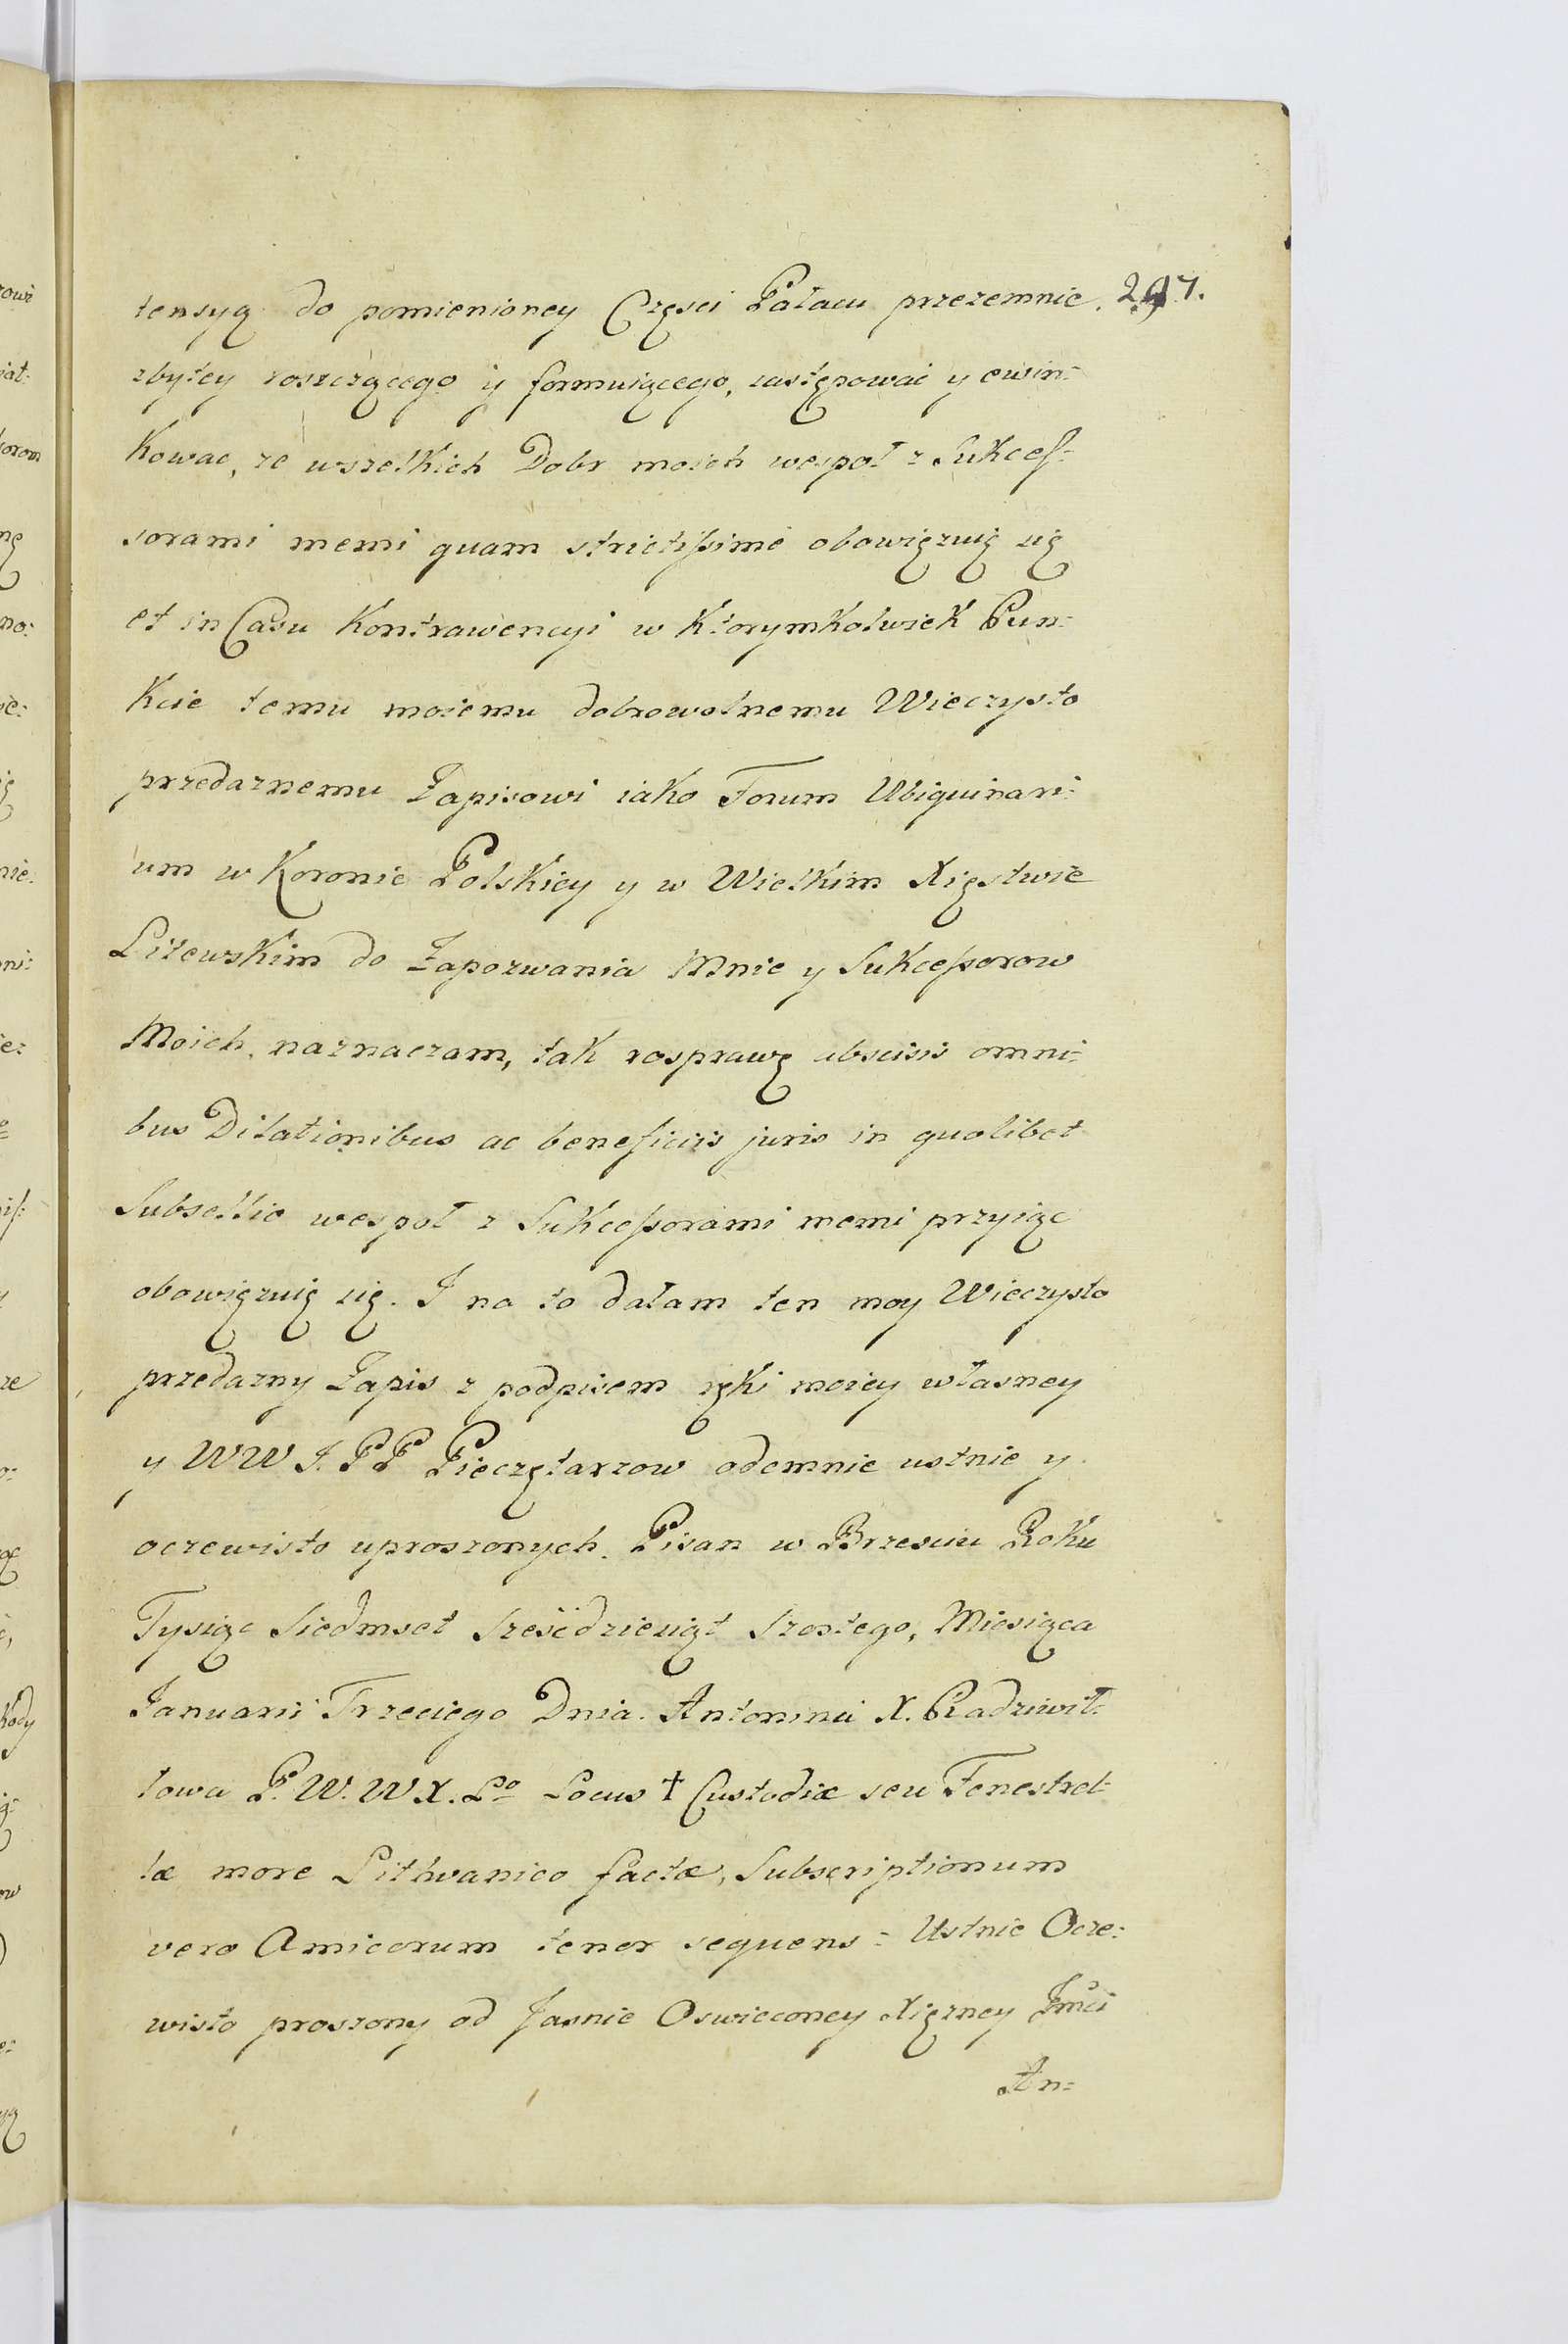 tensyą do pomienioney Części Pałacu przezemnie. 297.
zbytey roszczącego y formuiącego, zastępować y ewin=
kowac, ze wszelkich Dobr moich wespoł z Sukces=
sorami memi quam strictissime obowięzuię się
et in Casu Kontrawencyi w Ktorymkolwiek Pun=
kcie temu moiemu dobrowolnemu Wieczysto
przedaznemu Zapisowi iako Forum Ubiquinari=
um w Koronie Polskiey y w Wielkim Xięstwie
Litewskim do Zapozwania Mnie y Sukcessorow
Moich, naznaczam, tak rosprawę abscisis omni=
bus Dilationibus ac beneficiis juris in quolibet
Subsellio wespoł z Sukcessorami memi przyiąc
obowięzuię się. I na to dałam ten moy Wieczysto
przedazny Zapis z podpisem ręki moiey własney
y WW J. PP Pieczętarzow odemnie ustnie y
oczewisto uproszonych. Pisan w Brzesciu Roku
Tysiąc Siedmset Sześćdziesiąt Szostego, Miesiąca
Januarii Trzeciego Dnia. Antonina X. Radziwił=
łowa P. W. W X. Lo Locus † Custodiæ seu Fenestrel=
læ more Lithvanico factæ, Subscriptionum
vero Amicorum tenor sequens = Ustnie Ocze=
wisto proszony od Jasnie Oswieconey Xięzney Jmci
An=